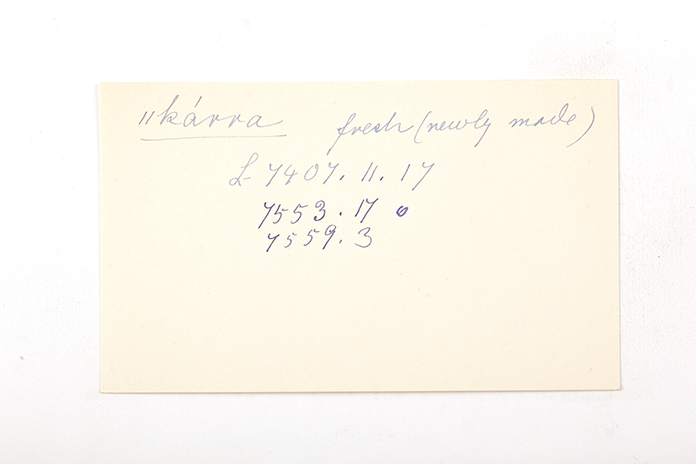 ǁkárra fresh (newly made)
L 7407. 11. 17
7553. 17 o
7559. 3